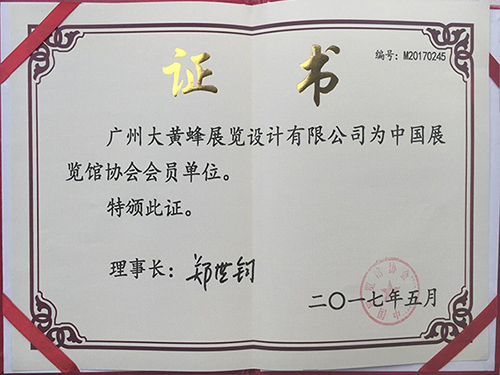 编号:M20170245
证 书
广州大黄蜂展览设计有限公司为中国展
览馆协会会员单位。
特颁此证。
理事长:郑世钧
二〇一七年五月